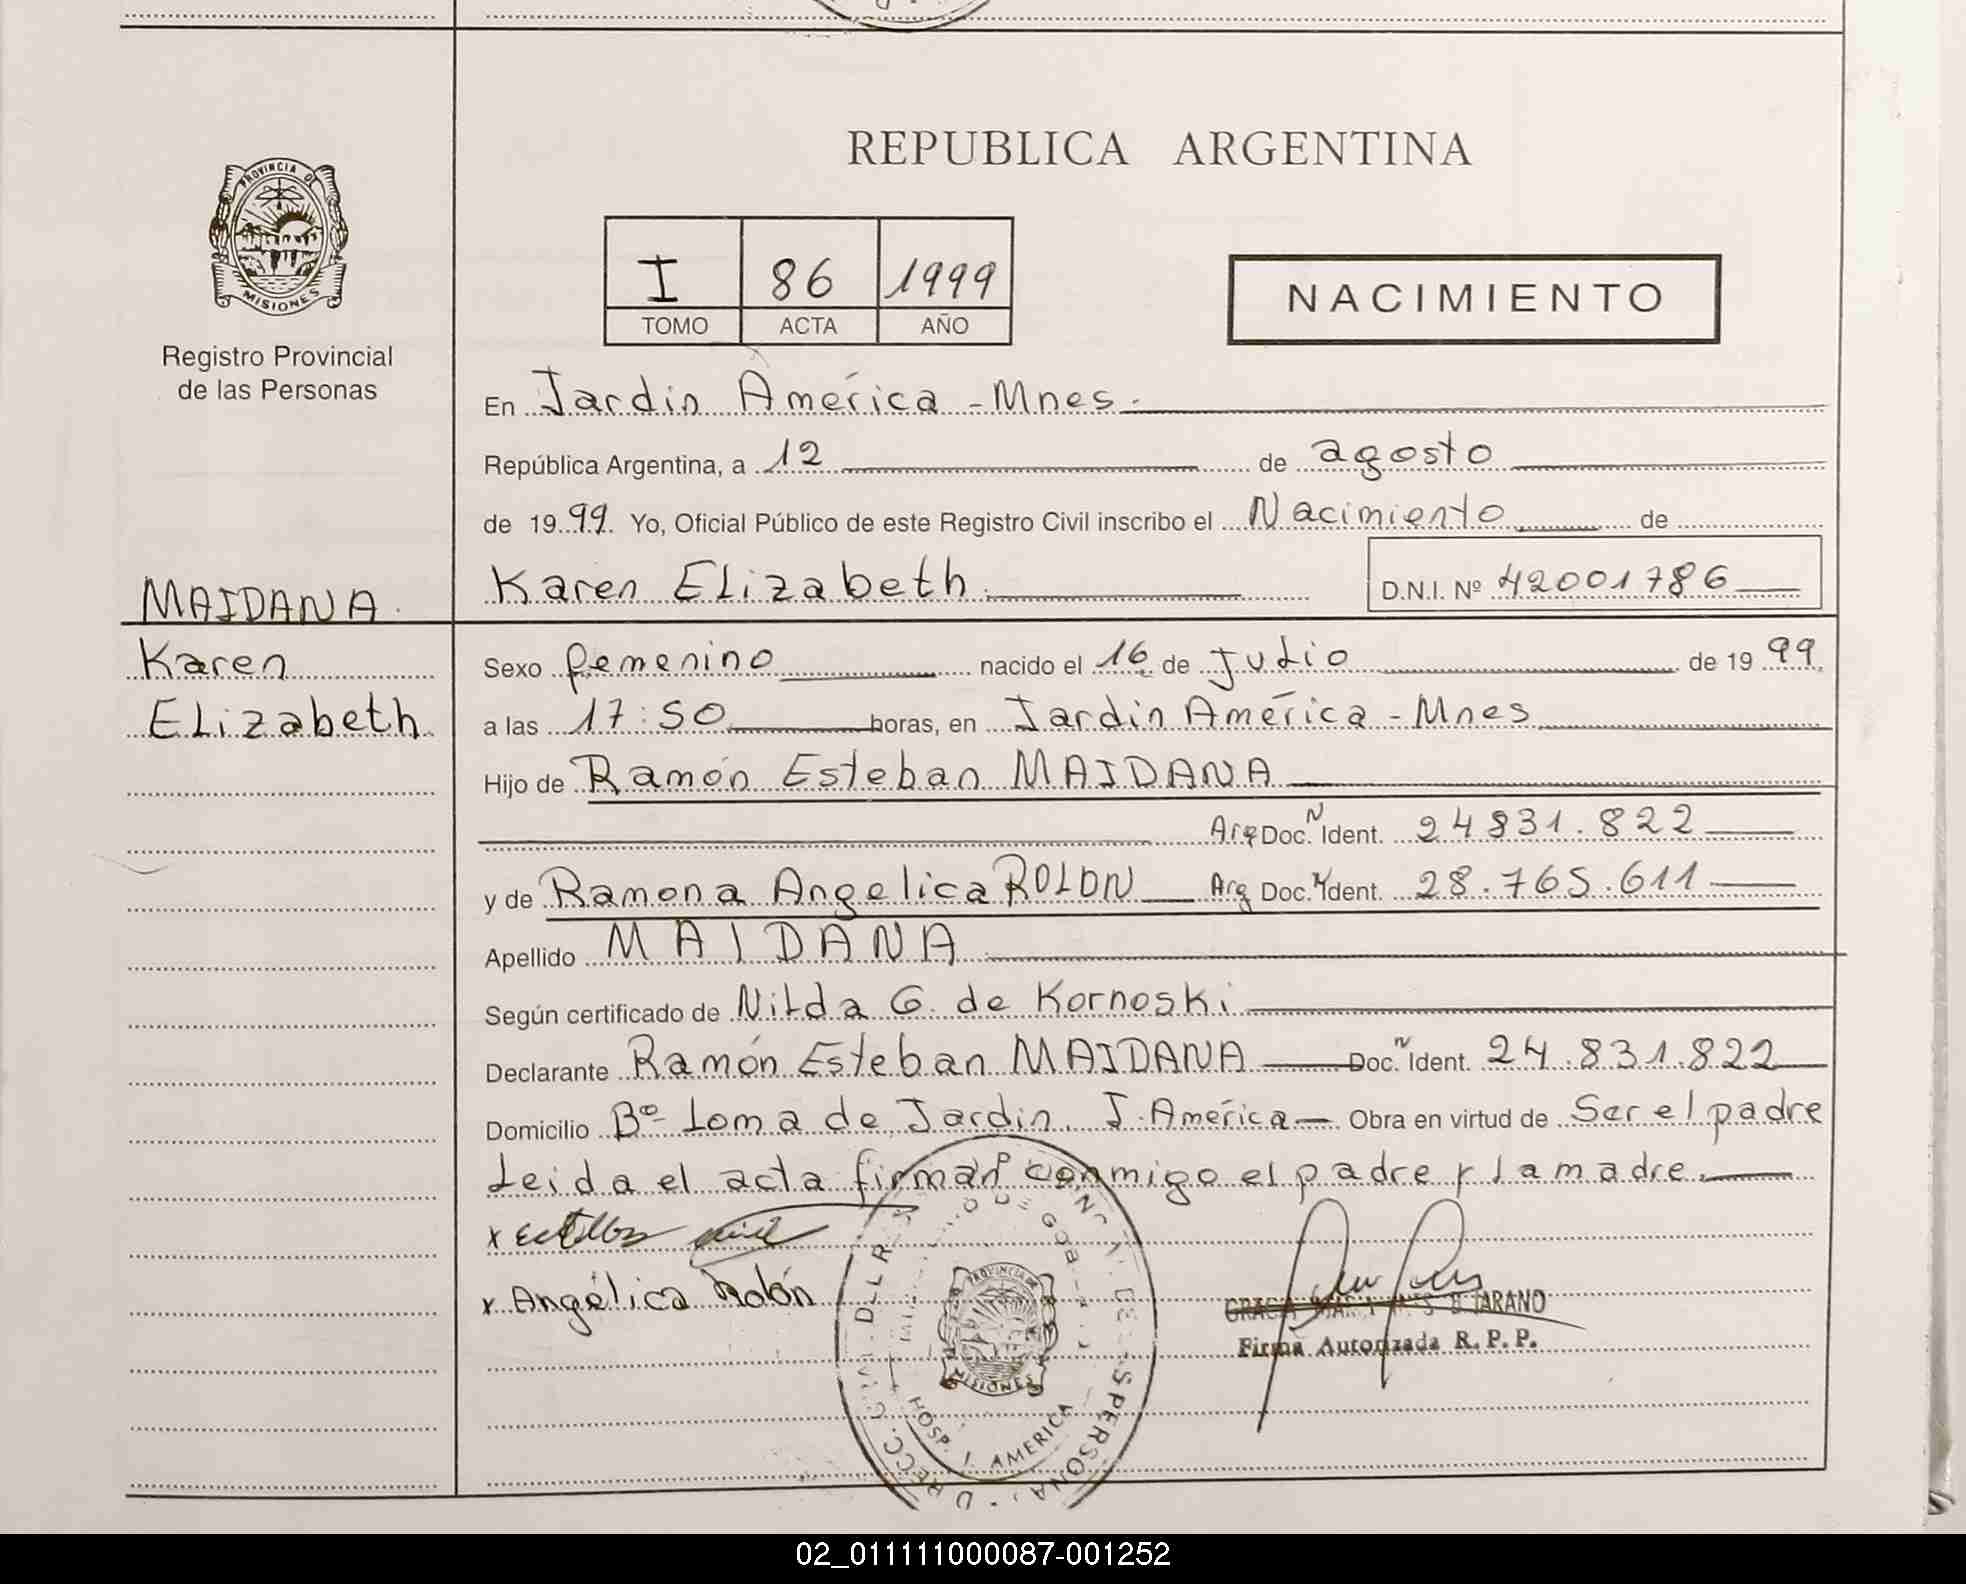 REPUBLICA ARGENTINA
PROVINCIA DE
MISIONES
Registro Provincial
de las Personas
I 86 1999
TOMO ACTA AÑO
NACIMIENTO
En Jardín América - Mnes.
República Argentina, a 12 de agosto
de 1999. Yo, Oficial Público de este Registro Civil inscribo el Nacimiento de
Karen Elizabeth D.N.I. Nº 42001786
MAIDANA
Karen
Elizabeth
Sexo femenino nacido el 16 de Julio de 1999
a las 17:50 horas, en Jardín América - Mnes
Hijo de Ramón Esteban MAIDANA
Arg Doc. N Ident. 24831.822
y de Ramona Angelica ROLON Arg Doc. N Ident. 28.765.611
Apellido MAIDANA
Según certificado de Nilda G. de Kornoski
Declarante Ramón Esteban MAIDANA Doc. N Ident. 24.831.822
Domicilio Bº Loma de Jardín. J. América Obra en virtud de Ser el padre
Leida el acta firman conmigo el padre y la madre.
x
x Angélica Rolón
PROVINCIA DE
MISIONES
HOSP. J. AMERICA
Firma Autorizada R. P. P.
02_011111000087-001252